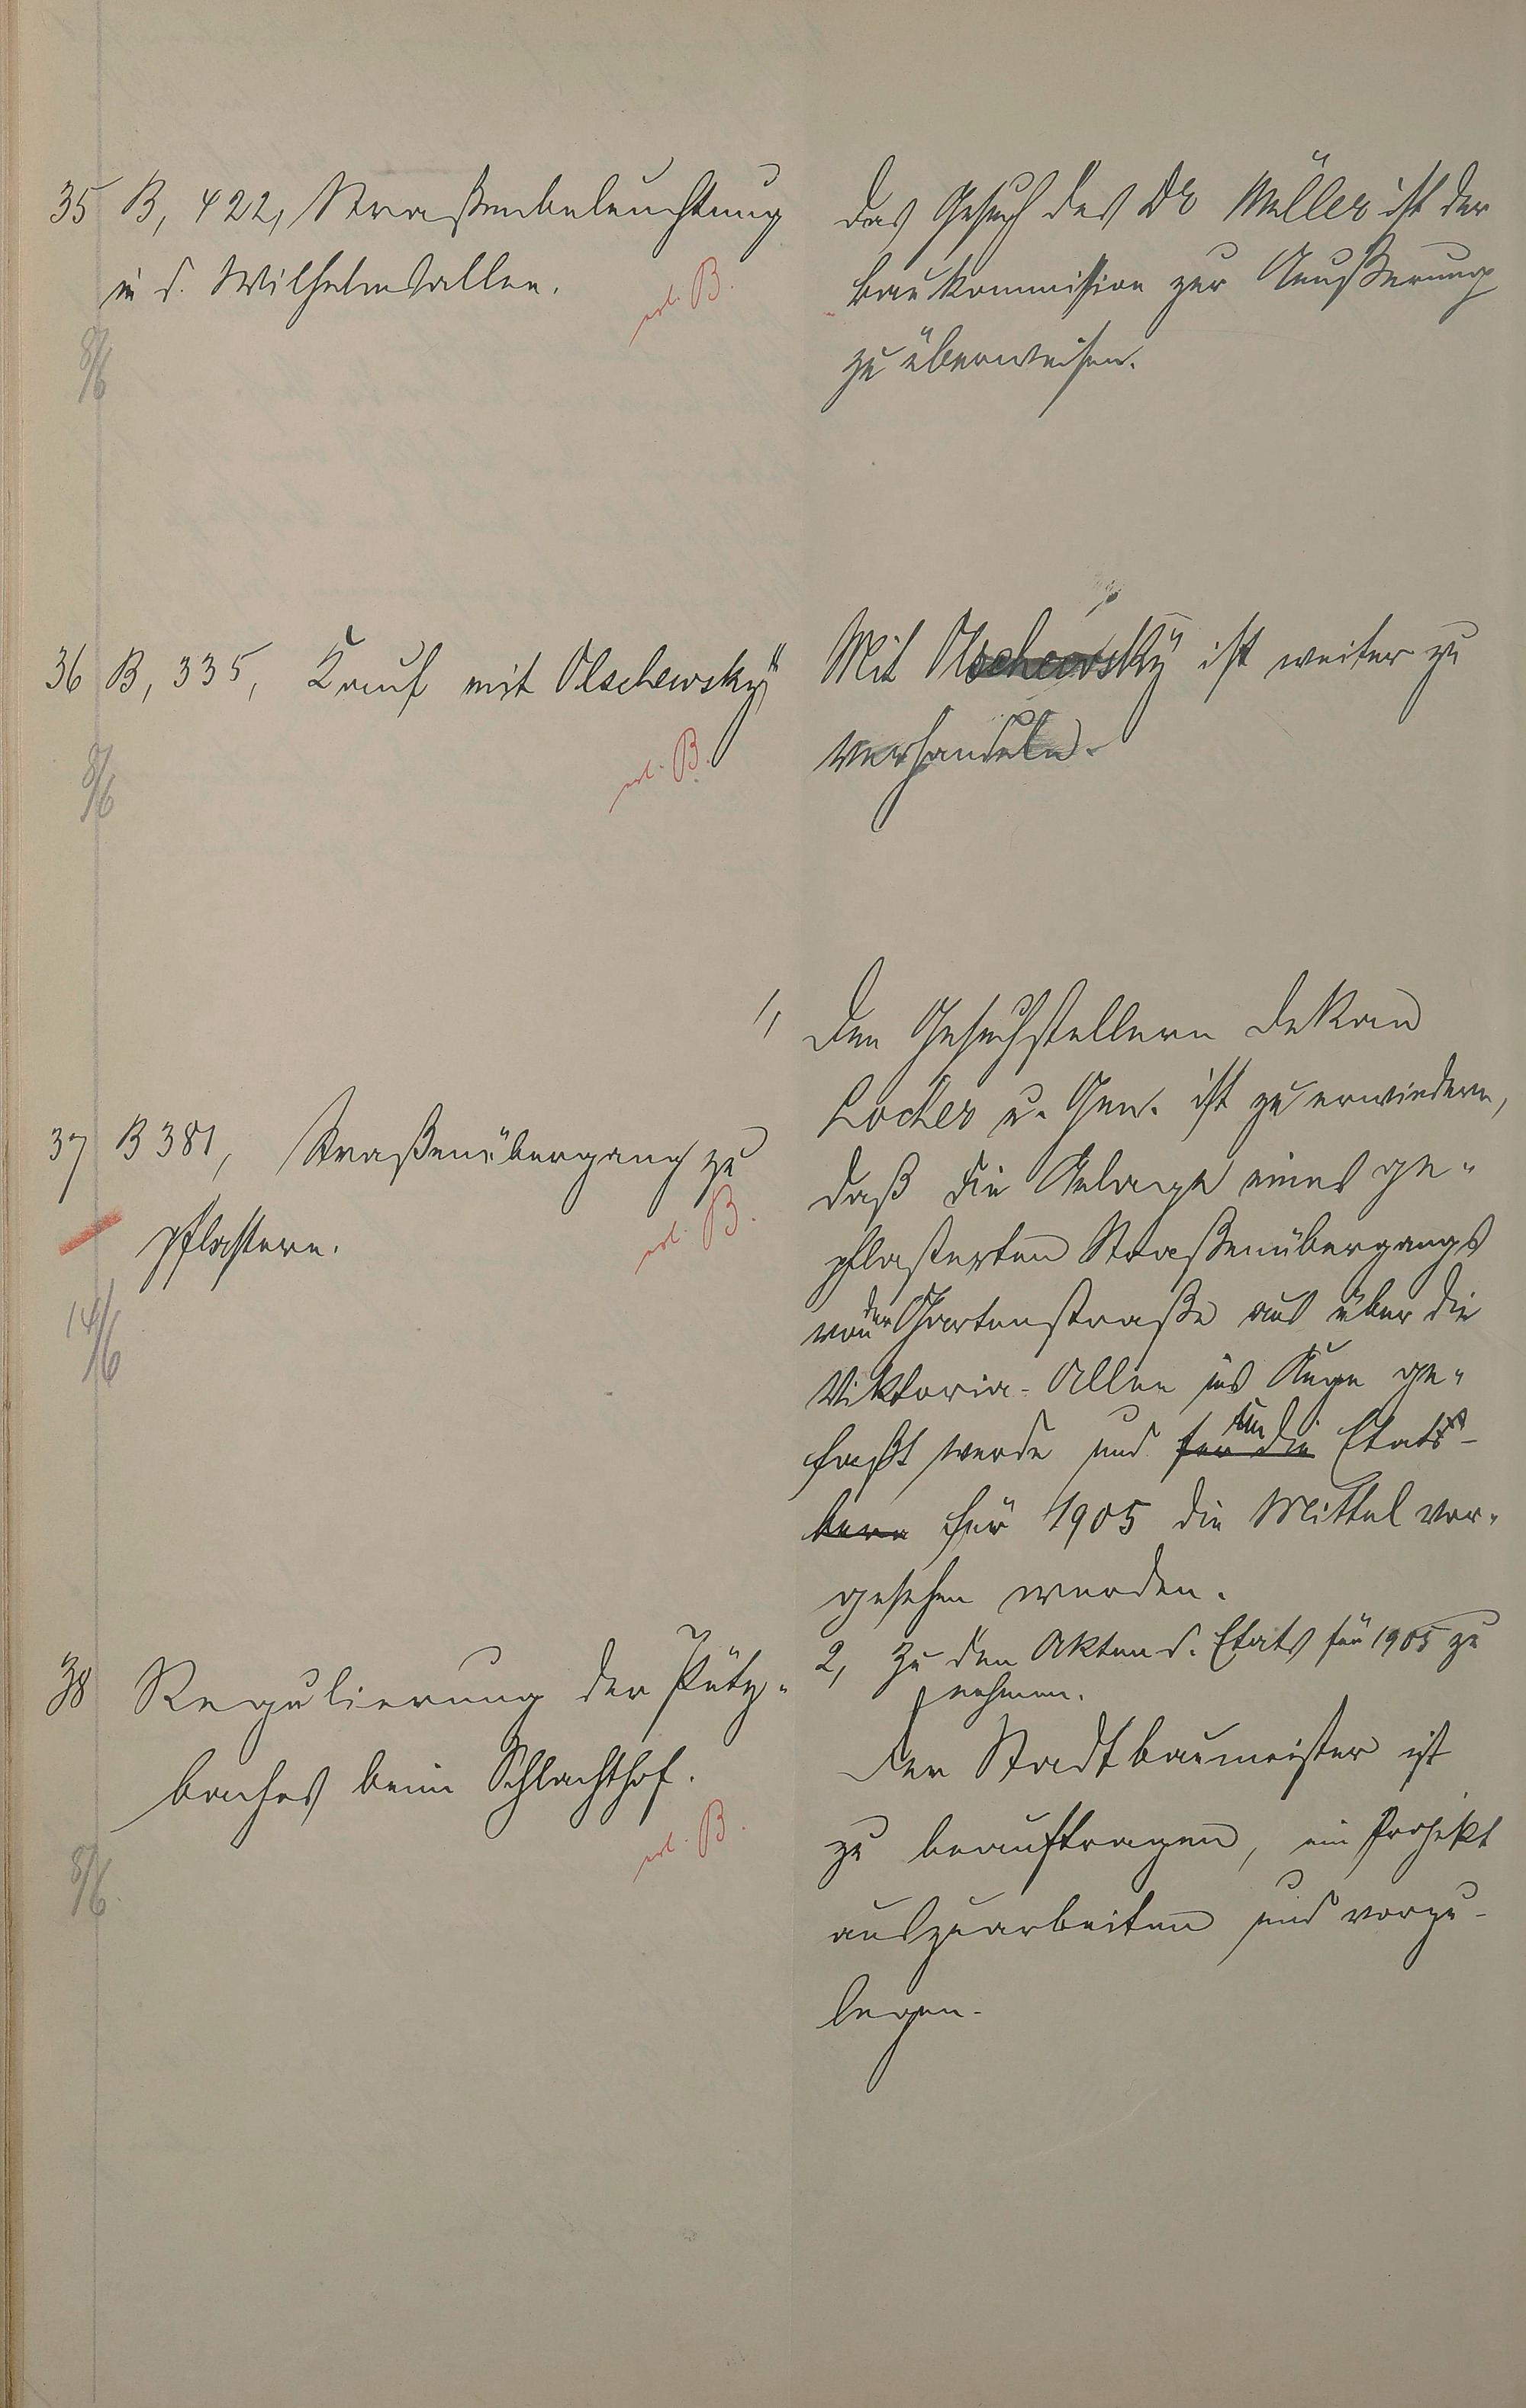 35 B, 422, Straßenbeleuchtung
in d. Wilhelmsallee.
erl. B.
8/6
Das Gesuch des Dr Müller ist der
Baukommission zur Äußerung
zu überweisen.
36 B, 335, Kauf mit Olschewsky
erl. B.
8/6
Mit Olschewsky ist weiter zu
verhandeln.
37 B 381, Straßenübergang zu
pflastern.
erl. B.
14/6
1, Den Gesuchstellern Dekan
Locher u. Gen. ist zu erwiedern,
daß die Anlage eines ge-
pflasterten Straßenübergangs
von der Gartenstraße aus über die
Viktoria-Allee ins Auge ge-
faßt werde und für die im Etat
für 1905 die Mittel vor-
gesehen werden.
2, Zu den Akten d. Etats für 1905 zu
nehmen.
38 Regulierung der Pütz-
baches beim Schlachthof.
erl. B.
8/6.
Der Stadtbaumeister ist
zu beauftragen, ein Projekt
auszuarbeiten und vorzu-
legen.